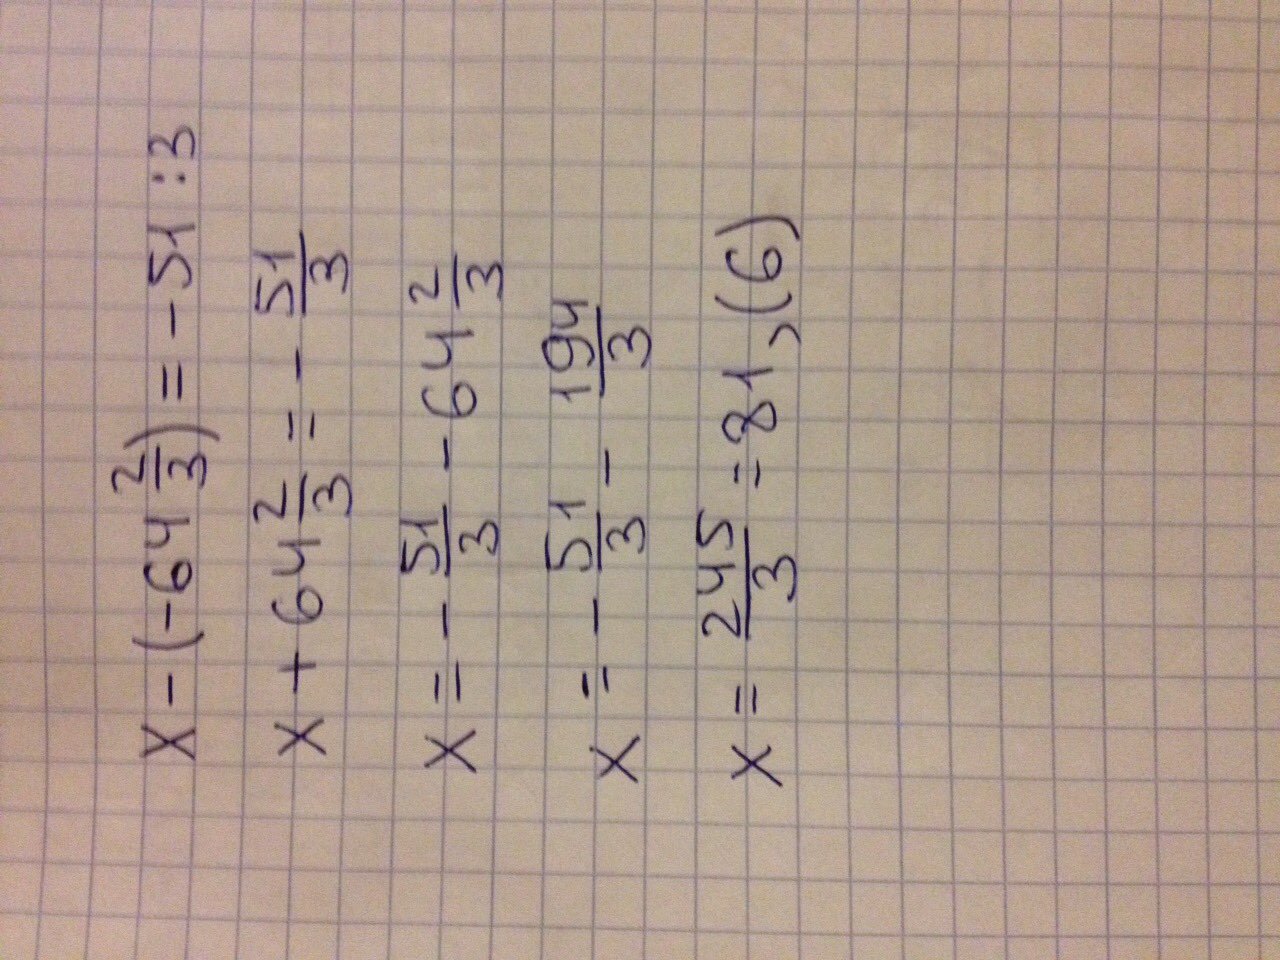 x - (-64 2/3) = -51 : 3
x + 64 2/3 = - 51/3
x = - 51/3 - 64 2/3
x = - 51/3 - 194/3
x = 245/3 = 81,(6)